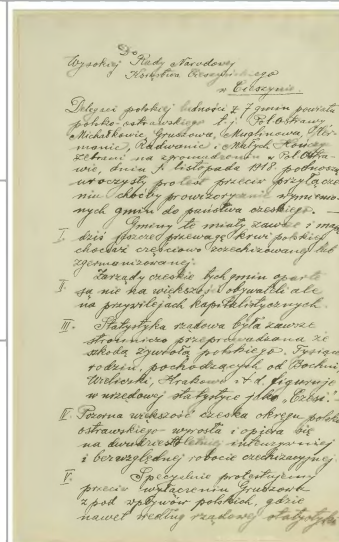 Do
Wysokiej Rady Narodowej
Księstwa Cieszyńskiego
w Cieszynie.
Delegaci polskiej ludności z 7 gmin powiatu
polsko-ostrawskiego t. j. Pol. Ostrawy
Michałkowic, Gruszowa, Muglinowa, Her-
manic, Radwanic i Małych Kończyc
zebrani na zgromadzeniu w Pol. Ostra-
wie, dnia listopada 1918 podnoszą
uroczysty protest przeciw przyłącze-
niu choćby prowizorycznie wymienio-
nych gmin do państwa czeskiego. —
I. Gminy te miały zawsze i mają
dziś jeszcze przewagę krwi polskiej
chociaż częściowo zczechizowanej lub
zgermanizowanej.
II. Zarządy czeskie tych gmin oparte
są nie na większości obywateli ale
na przywilejach kapitalistycznych.
III. Statystyka rządowa była zawsze
stronniczo przeprowadzana ze
szkodą żywiołu polskiego. Tysiące
rodzin, pochodzących od Bochni,
Wieliczki, Krakowa i t. d. figuruje
w urzędowej statystyce jako „Czesi".
IV. Pozorna większość czeska okręgu polsko
ostrawskiego wyrosła i opiera się
na dwudziestoletniej intenzywniej
i bezwzględnej robocie czechizacyjnej.
V. Specyalnie protestujemy
przeciw wyłączeniu Gruszowa
z pod wpływów polskich, gdzie
nawet według rządowej statystyki